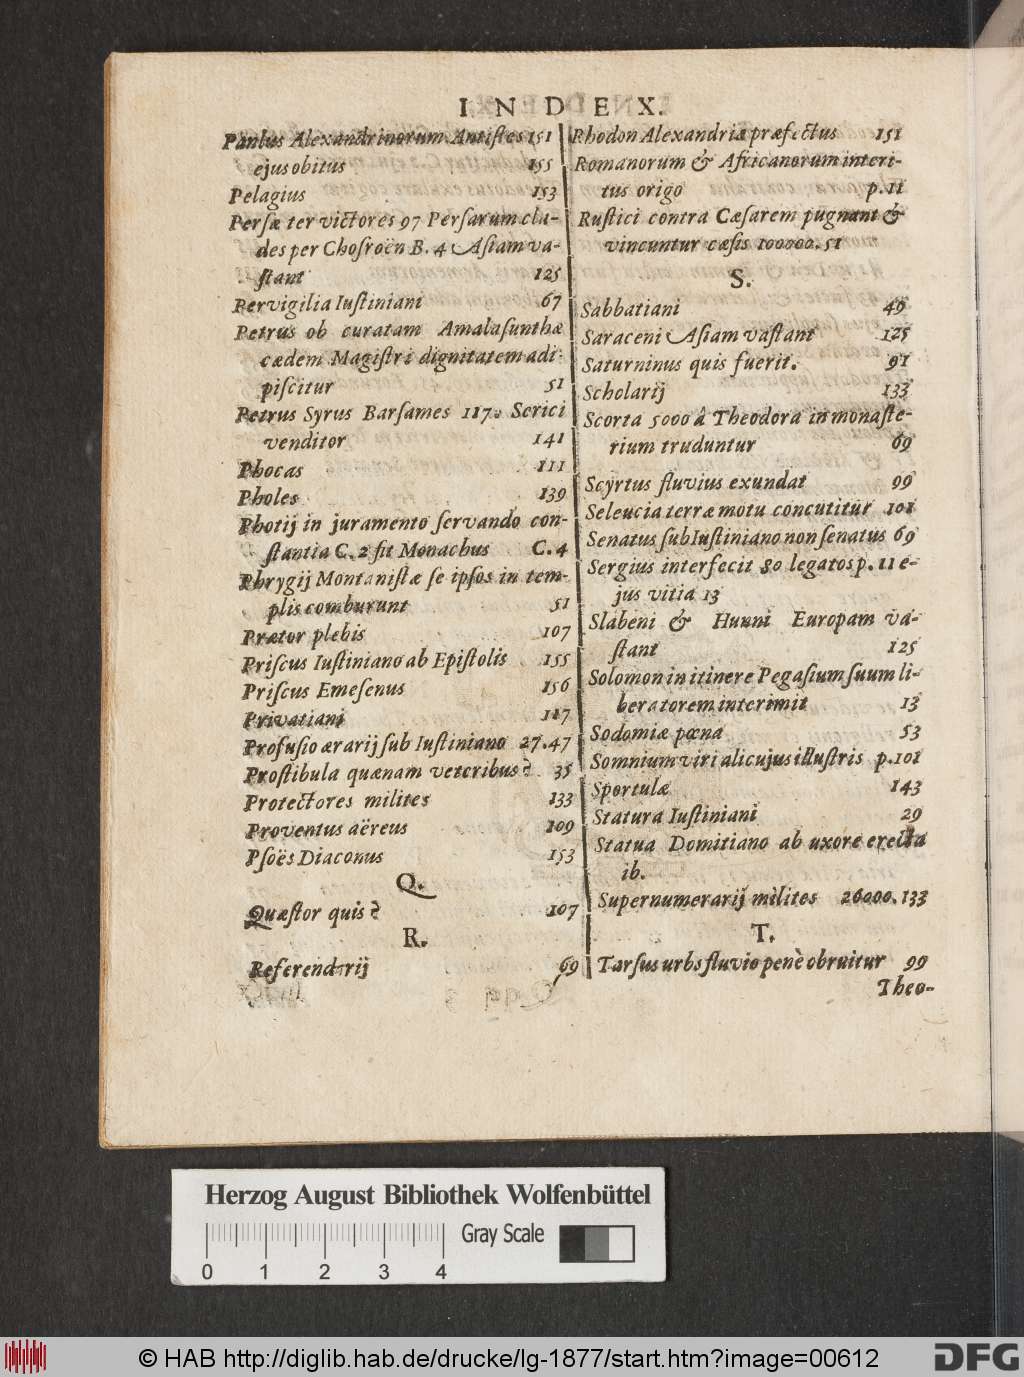 INDEX.
Paulus Alexandrinorum Antiſtes 151
ejus obitus 155
Pelagius 153
Perſæ ter victores 97 Perſarum cla-
des per Choſroën B. 4 Aſiam va-
ſtant 125
Pervigilia Iuſtiniani 67
Petrus ob curatam Amalaſunthæ
cædem Magiſtri dignitatem adi-
piſcitur 51
Petrus Syrus Barſames 117. Serici
venditor 141
Phocas 111
Pholes 139
Photij in juramento ſervando con-
ſtantia C. 2 fit Monachus C. 4
Phrygij Montaniſtæ ſe ipſos in tem-
plis comburunt 51
Prætor plebis 107
Priſcus Iuſtiniano ab Epiſtolis 155
Priſcus Emeſenus 156
Privatiani 117
Profuſio ærarij ſub Iuſtiniano 27. 47
Proſtibula quænam veteribus? 35
Protectores milites 133
Proventus aëreus 109
Pſoës Diaconus 153
Q.
Quæſtor quis? 107
R.
Referendarij 69
Rhodon Alexandriæ præfectus 151
Romanorum & Africanorum interi-
tus origo p. 11
Ruſtici contra Cæſarem pugnant &
vincuntur cæſis 100000. 51
S.
Sabbatiani 49
Saraceni Aſiam vaſtant 125
Saturninus quis fuerit. 91
Scholarij 133
Scorta 5000 â Theodora in monaſte-
rium truduntur 69
Scyrtus fluvius exundat 99
Seleucia terræ motu concutitur 101
Senatus ſub Iuſtiniano non ſenatus 69
Sergius interfecit 80 legatos p. 11 e-
jus vitia 13
Slabeni & Hunni Europam va-
ſtant 125
Solomon in itinere Pegaſium ſuum li-
beratorem interimit 13
Sodomiæ pœna 53
Somnium viri alicujus illuſtris p. 101
Sportulæ 143
Statura Iuſtiniani 29
Statua Domitiano ab uxore erecta
ib.
Supernumerarij milites 26000. 133
T.
Tarſus urbs fluvio penè obruitur 99
Theo-
Herzog August Bibliothek Wolfenbüttel
Gray Scale
0 1 2 3 4
© HAB http://diglib.hab.de/drucke/lg-1877/start.htm?image=00612
DFG